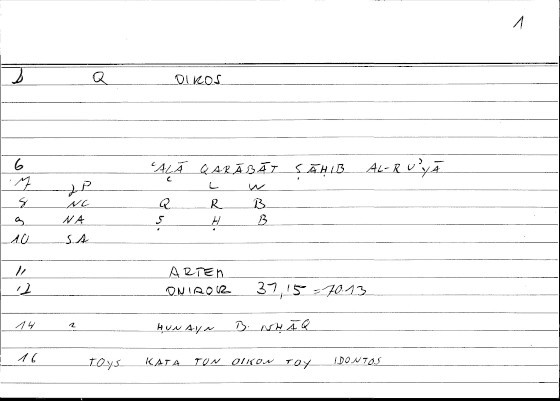 1
b Q OIKOS
6 ʿALĀ QARĀBĀT ṢĀḤIB AL-RUʾYĀ
7 JP ʿ L W
8 NC Q R B
9 NA Ṣ Ḥ B
10 SA
11 ARTEM
12 ONIROK 37,15 = 7013
14 2 ḤUNAYN B. ISḤĀQ
16 TOYS KATA TON OIKON TOY IDONTOS